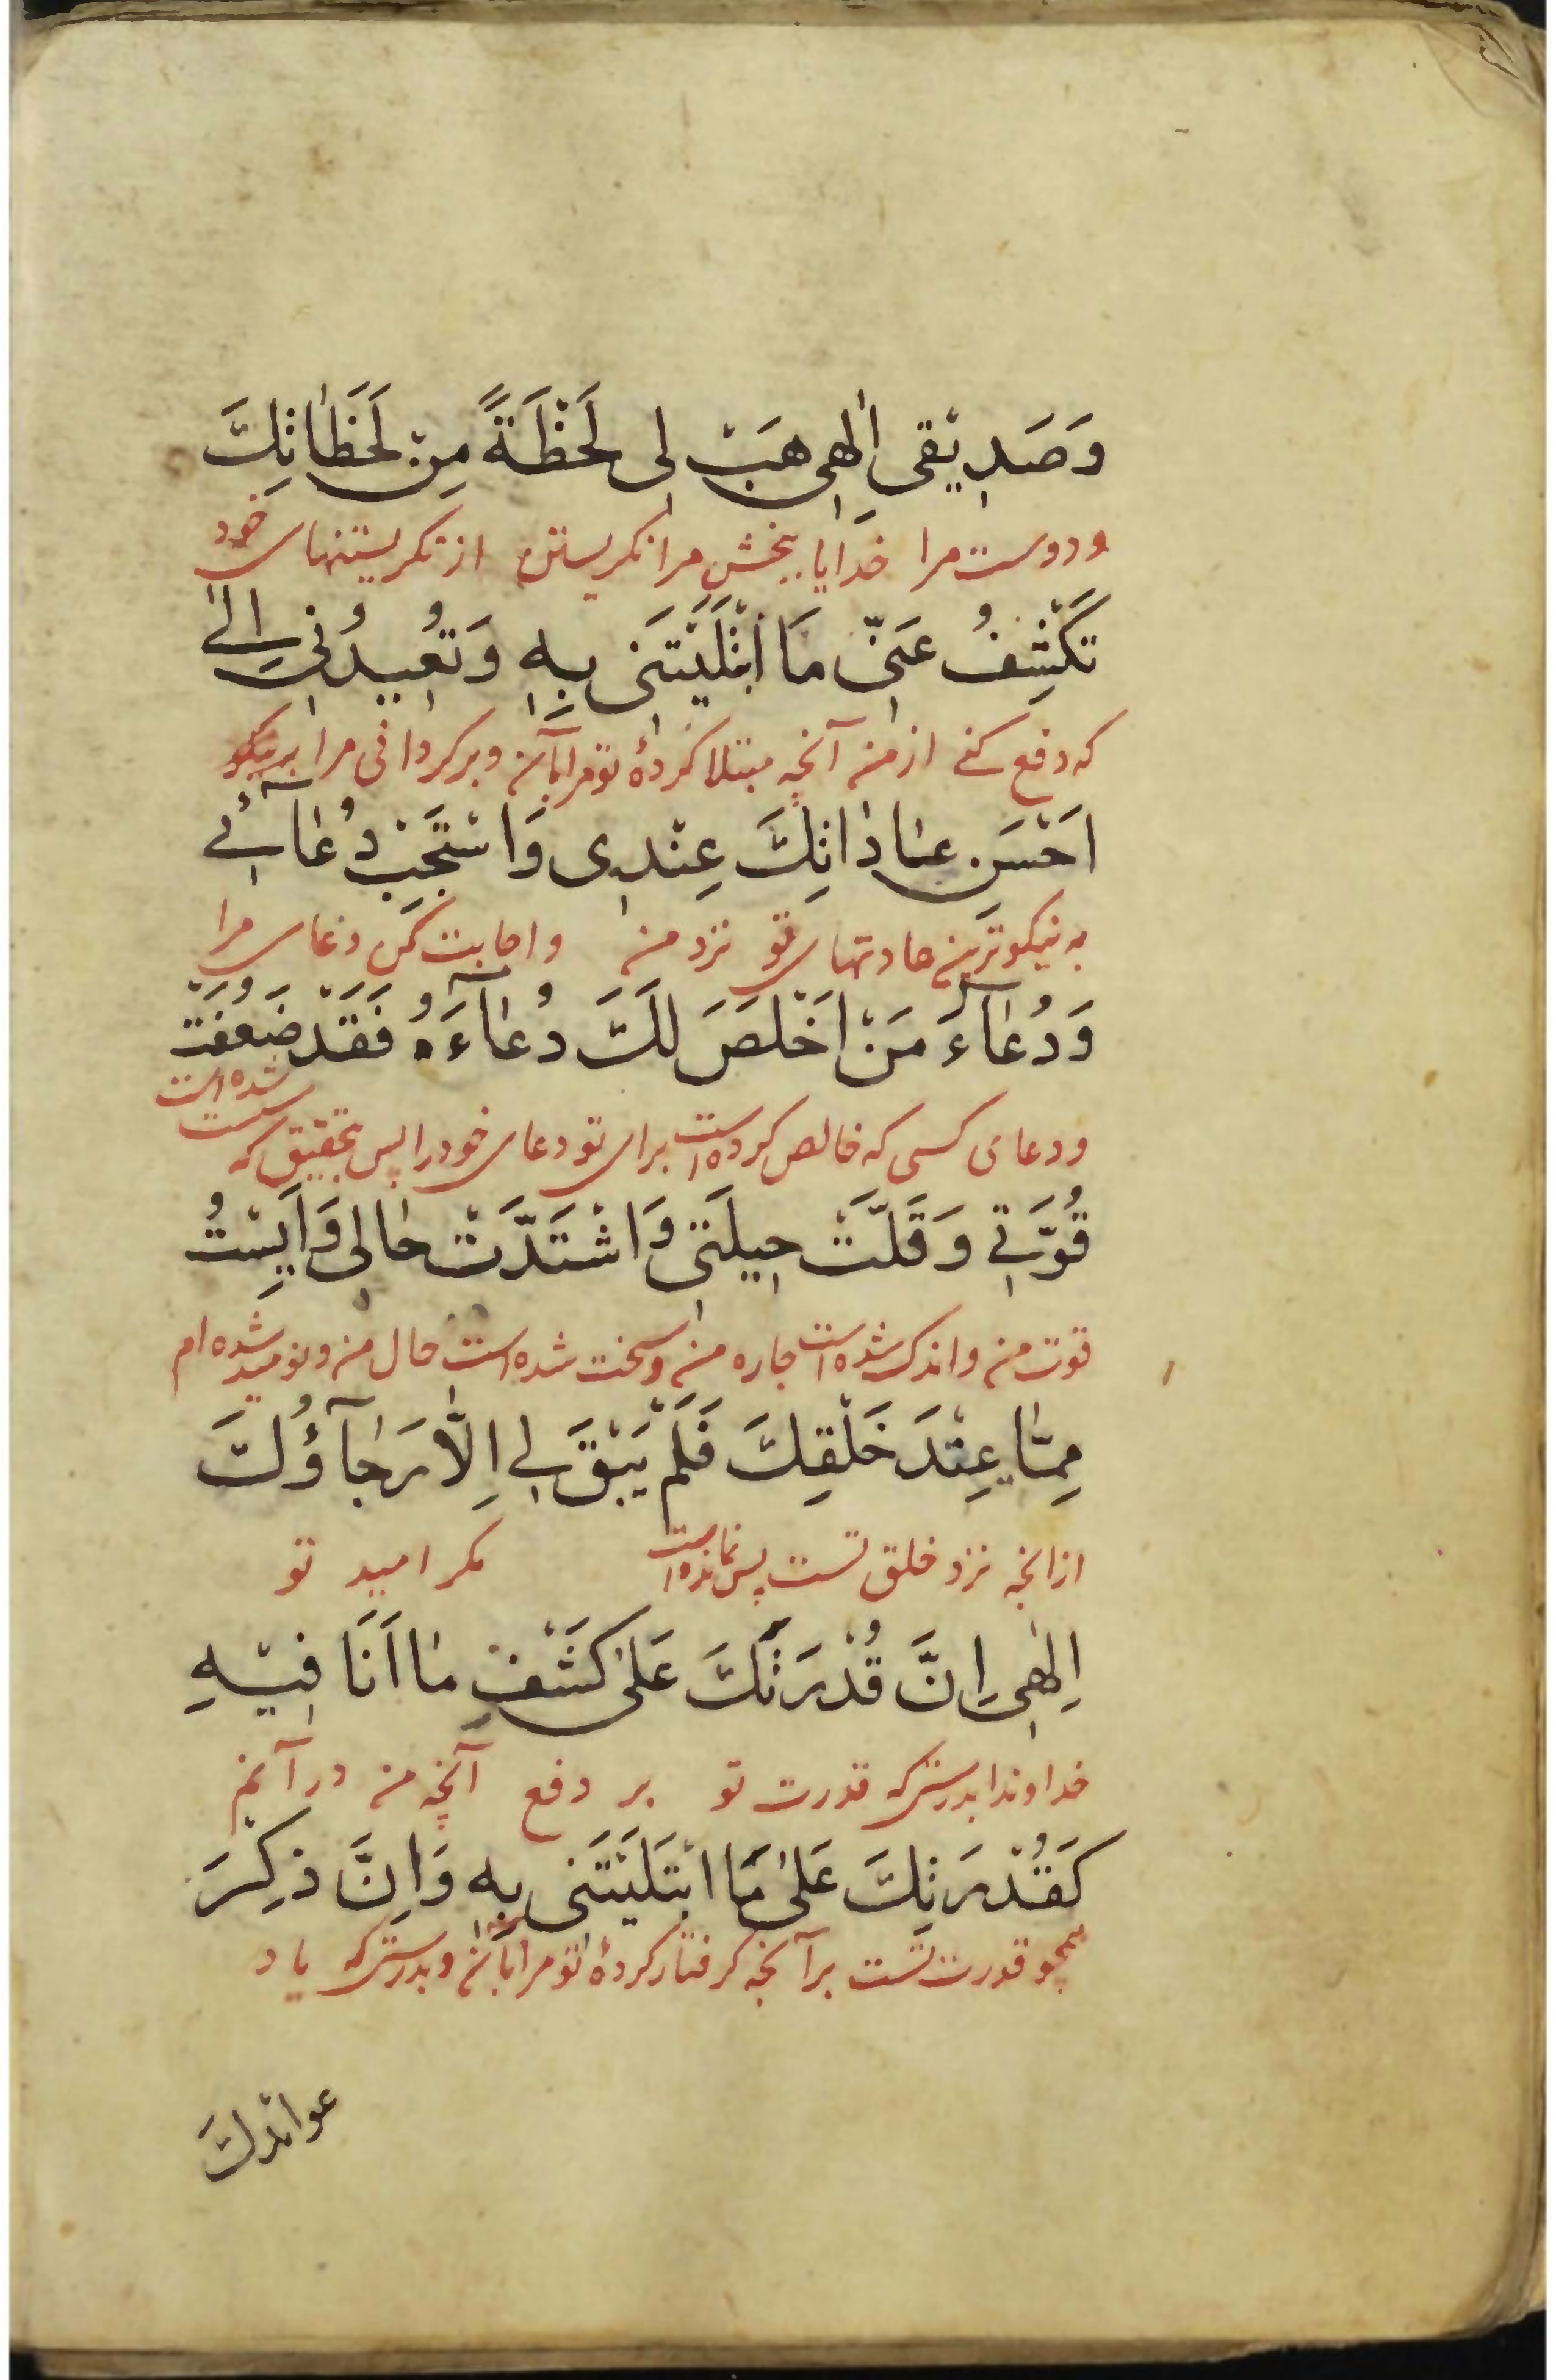 وَصَدِيْقى اِلٰهِى هَبْ لى لَحْظَةً مِنْ لَحَظٰاتِكَ
و دوست مرا خدایا ببخش مرا نکریستن از نکریستنهای خود
تَكْشِفُ عَنّى مَا ابْتَلَيْتَنى بِهِ وَتُعيدُنى اِلىٰ
که دفع کنے از من آنچه مبتلا کردهٔ تو مرا بآن و برکردانی مرا بر نیکو
اَحْسَنِ عٰادٰاتِكَ عِنْدِى وَاسْتَجِبْ دُعٰآئى
به نیکوترین عادتهای تو نزد من و اجابت کن دعای مرا
وَدُعٰآءَ مَنْ اَخْلَصَ لَكَ دُعٰآءَهُ فَقَدْ ضَعُفَتْ
و دعای کسی که خالص کرده است برای تو دعای خود را پس بتحقیق که سست شده است
قُوَّتى وَقَلَّتْ حِيلَتى وَاشْتَدَّتْ حٰالى وَاَيِسْتُ
قوت من و اندک شده است چاره من و سخت شده است حال من و نومید شده ام
مِمّٰا عِنْدَ خَلْقِكَ فَلَمْ يَبْقَ لى اِلّٰا رَجٰآؤُكَ
از انچه نزد خلق تست پس نمانده است مکر امید تو
اِلٰهِى اِنَّ قُدْرَتَكَ عَلىٰ كَشْفِ مٰا اَنَا فِيْهِ
خداوندا بدرستی که قدرت تو بر دفع آنچه من در آنم
كَقُدْرَتِكَ عَلىٰ مَا ابْتَلَيْتَنى بِهِ وَاِنَّ ذِكْرَ
همچو قدرت تست بر آنچه کرفتار کردهٔ تو مرا بآن و بدرستی که یاد
عوائدكَ